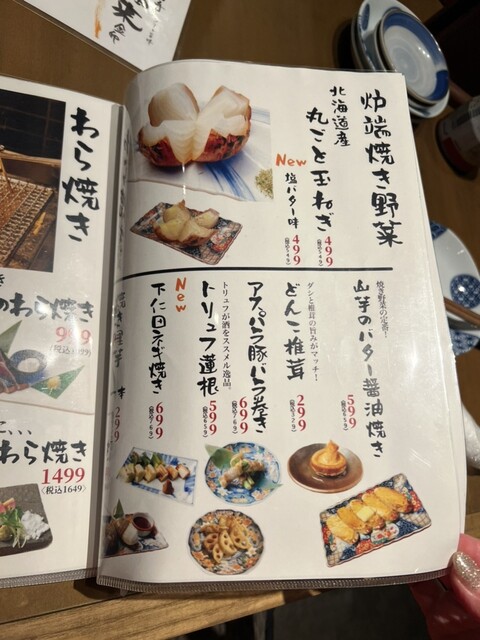 炉端焼き野菜
北海道産
丸ごと玉ねぎ
499
(税込549)
New
塩バター味
499
(税込549)
焼き野菜の定番!
山芋のバター醤油焼き
599
(税込659)
ダシと椎茸の旨みがマッチ!
どんこ椎茸
299
アスパラ豚バラ巻き
699
(税込769)
トリュフが酒をススメル逸品。
トリュフ蓮根
599
(税込659)
New
下仁田ネギ焼き
699
(税込769)
わら焼き
のわら焼き
わら焼き
1499
<税込1649>
299